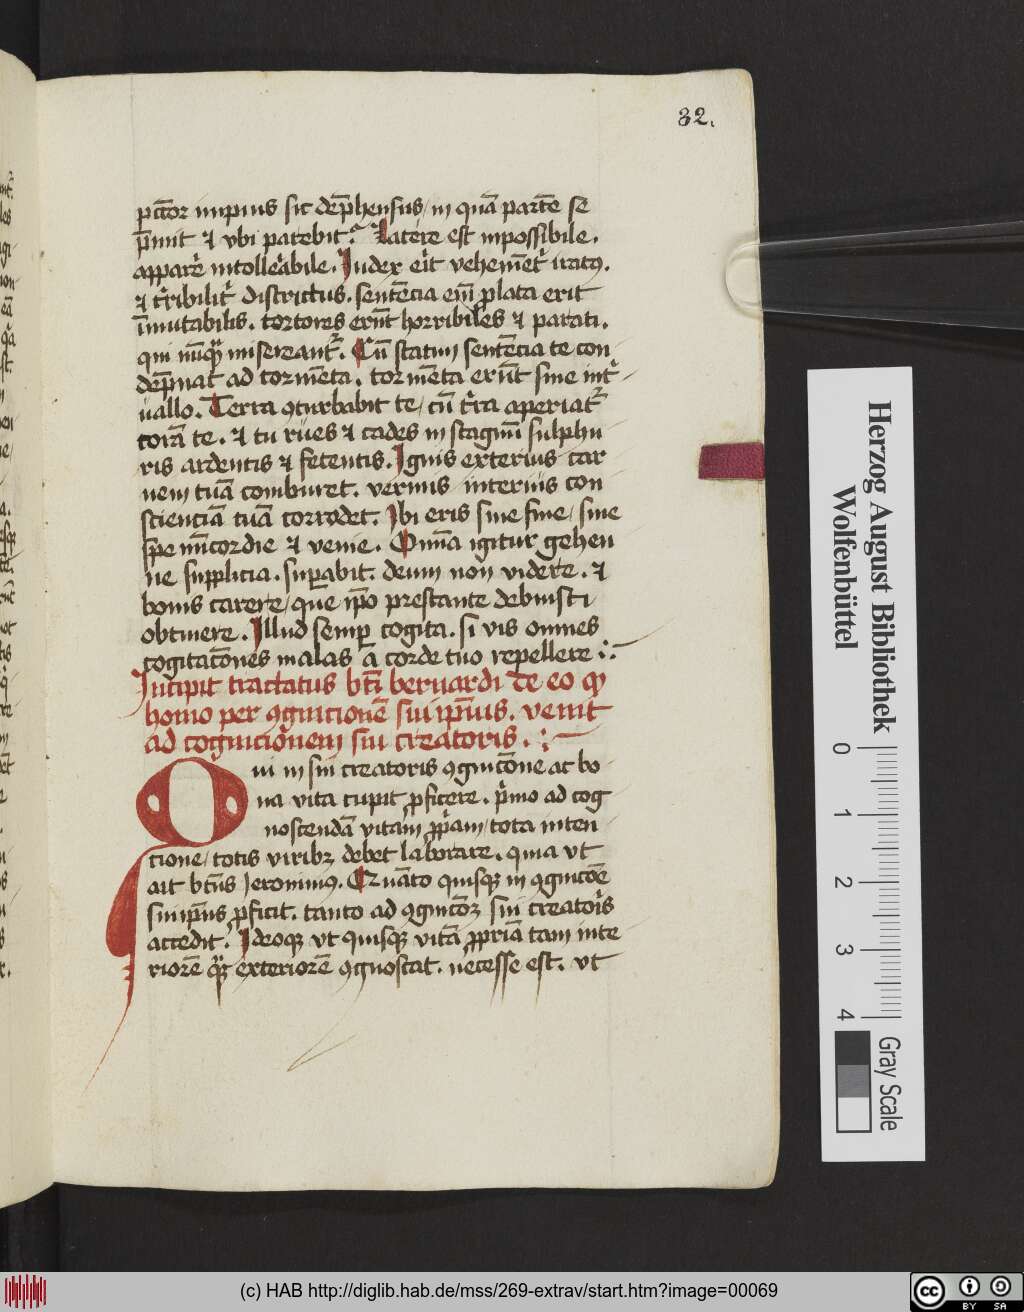 32.
pctor impius sic dep̄hensus / in quā partē se
p̄mit ⁊ vbi patebit. Latere est inpossibile.
apparer̄ intolle᷑abile. Iudex er̄it vehemēt᷑ iratꝰ.
⁊ t᷑ribilit᷑ districtus. sentēcia em̄ plata erit
īmutabilis. tortores erūt horribiles ⁊ parati.
qui nūꝗ᷑ misereant᷑. Cū statim sentēcia te con
dēpnat ad tormēta. tormēta erūt sine int᷑
uallo. Terra ꝯturbabit te / cū t᷑ra aperiat᷑
corā te. ⁊ tu rues ⁊ cades in stagnū sulphu
ris ardentis ⁊ fetentis. Ignis exterius car
nem tuā comburet. vermis interius con
scienciā tuā corrodet. Ibi eris sine fine / sine
spe mīcordie ⁊ venie. Omīa igitur gehen
ne supplicia. suꝑabit. deum non videre. ⁊
bonis carere / que ip̄o prestante debuisti
obtinere. Illud semꝑ cogita. si vis omnes
cogitacōnes malas a corde tuo repellere
Incipit tractatus bt̄i bernardi de eo ꝙ
homo per ꝯgnicionē sui ip̄ius. venit
ad cognicionem sui creatoris.
Qui in sui creatoris ꝯgnicōne ac bo
na vita cupit ꝓficere. p̄mo ad cog
noscendā vitam ꝓp̄am / tota inten
cione / totis viribꝫ debet laborare. quia vt
ait bt̄us Ieronimꝰ. Quāto quisqꝫ in ꝯgnicōe
sui ip̄ius ꝓficit. tanto ad ꝯgnicōꝫ sui creatoris
accedit. Ideoqꝫ vt quisqꝫ vitā ꝓpriā tam inte
riorē ꝗ᷑ꝫ exteriorē ꝯgnoscat. necesse est. vt
Herzog August Bibliothek
Wolfenbüttel
0 1 2 3 4
Gray Scale
(c) HAB http://diglib.hab.de/mss/269-extrav/start.htm?image=00069
cc BY SA